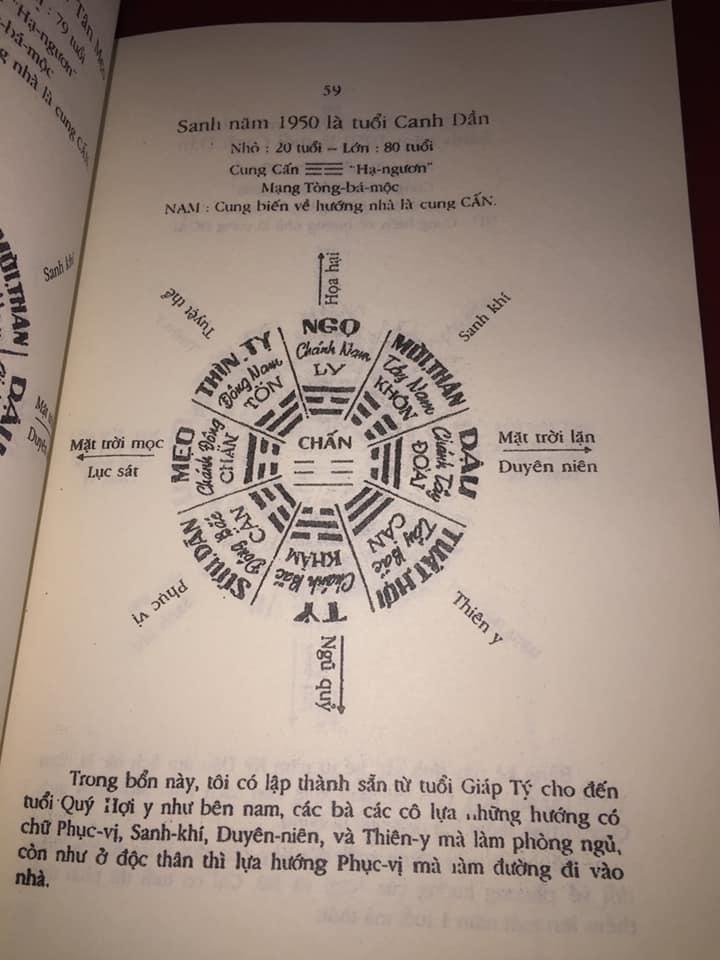 Tân Mẹo
: 79 tuổi
"Hạ-ngươn"
-bá-mộc
nhà là cung CẤN
Sanh khí
MÙI.THÂN
DẬU
Mặt tr
Duyên
59
Sanh năm 1950 là tuổi Canh Dần
Nhỏ : 20 tuổi – Lớn : 80 tuổi
Cung Cấn ☷ "Hạ-ngươn"
Mạng Tòng-bá-mộc
NAM : Cung biến về hướng nhà là cung CẤN.
Họa hại
Tuyệt thể
Sanh khí
NGỌ
Chánh Nam
LY
THÌN.TỴ
Đông Nam
TỐN
MÙI.THÂN
Tây Nam
KHÔN
Mặt trời mọc
Lục sát
MẸO
Chánh Đông
CHẤN
CHẤN
DẬU
Chánh Tây
ĐOÀI
Mặt trời lặn
Duyên niên
SỬU.DẦN
Đông Bắc
CẤN
TÝ
Chánh Bắc
KHẢM
TUẤT.HỢI
Tây Bắc
CÀN
Phục vị
Ngũ quỷ
Thiên y
Trong bổn này, tôi có lập thành sẵn từ tuổi Giáp Tý cho đến
tuổi Quý Hợi y như bên nam, các bà các cô lựa những hướng có
chữ Phục-vị, Sanh-khí, Duyên-niên, và Thiên-y mà làm phòng ngủ,
còn như ở độc thân thì lựa hướng Phục-vị mà làm đường đi vào
nhà.